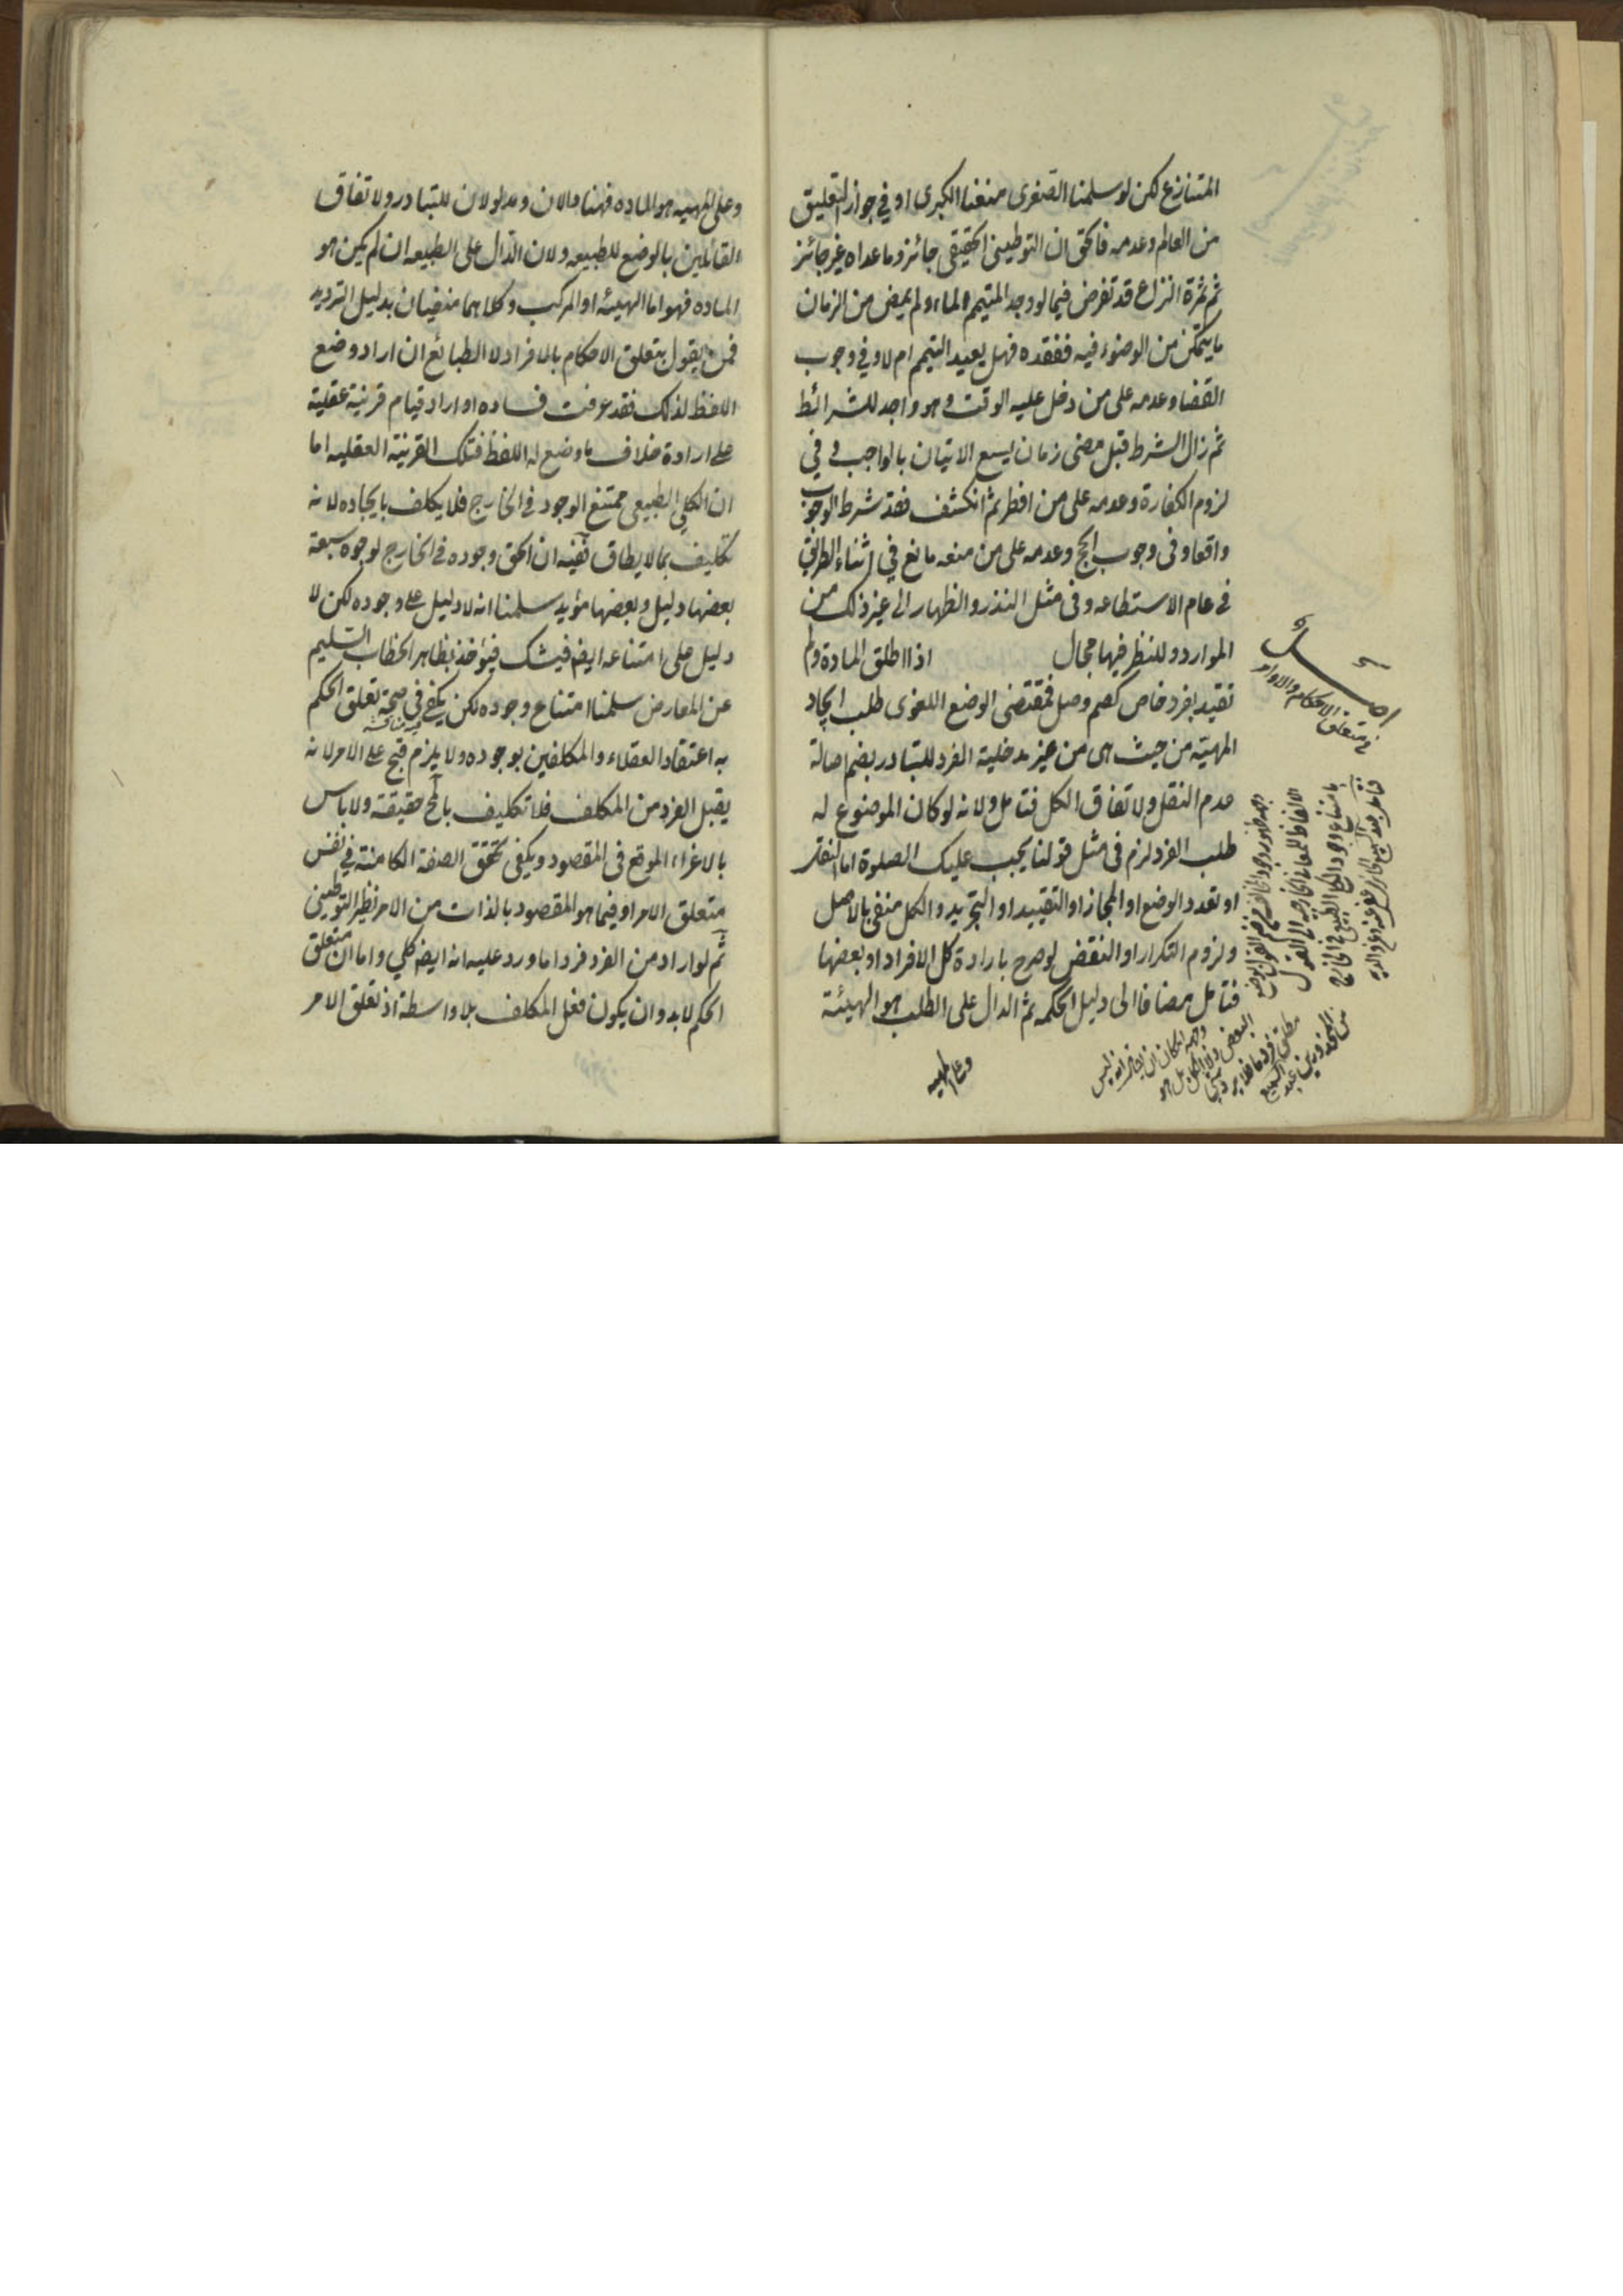 المتنازع لكن لو سلمنا الصغرى منعنا الكبرى او في جواز التعليق
من العالم وعدمه فالحق ان التوطينى الحقيقى جائز وما عداه غير جائز
ثم ثمرة النزاع قد تفرض فيما لو وجد المتيمم الماء ولم يمض من الزمان
ما يتمكن من الوضوء فيه ففقده فهل يعيد التيمم ام لا وفي وجوب
القضا وعدمه على من دخل عليه الوقت وهو واجد للشرائط
ثم زال الشرط قبل مضى زمان يسع الاتيان بالواجب و في
لزوم الكفارة وعدمه على من افطر ثم انكشف فقد شرط الوجوب
واقعا وفى وجوب الحج وعدمه على من منعه مانع في اثناء الطريق
في عام الاستطاعه وفى مثل النذر والظهار الى غير ذلك من
الموارد وللنظر فيها مجال اذا اطلق المادة ولم
تقيد بفرد خاص كصم وصل فمقتضى الوضع اللغوى طلب ايجاد
المهية من حيث هى من غير مدخلية الفرد للتبادر بضم اصالة
عدم النقل ولاتفاق الكل فتامل ولانه لو كان الموضوع له
طلب الفرد لزم فى مثل قولنا يجب عليك الصلوة اما النقل
او تعدد الوضع او المجاز او التقييد او التجريد والكل منفى بالاصل
ولزوم التكرار او النقض لو صرح بارادة كل الافراد او بعضها
فتامل مضافا الى دليل الحكمه ثم الدال على الطلب هو الهيئة
اصل
في متعلق الاحكام والاوامر
وعلى المهيه
وعلى المهيه هو الماده فهنا دالان ومدلولان للتبادر ولاتفاق
القائلين بالوضع للطبيعه ولان الدال على الطبيعه ان لم يكن هو
الماده فهو اما الهيئه او المركب وكلاهما منفيان بدليل الترديد
فمن يقول بتعلق الاحكام بالافراد لا الطبائع ان اراد وضع
اللفظ لذلك فقد عرفت فساده او اراد قيام قرينة عقلية
على ارادة خلاف ما وضع له اللفظ فتلك القرينة العقليه اما
ان الكلي الطبيعى ممتنع الوجود في الخارج فلا يكلف بايجاده لانه
تكليف بمالا يطاق ففيه ان الحق وجوده في الخارج لوجوه سبعة
بعضها دليل وبعضها مؤيد سلمنا انه لا دليل على وجوده لكن لا
دليل على امتناعه ايضا فيشك فيؤخذ بظاهر الخطاب السليم
عن المعارض سلمنا امتناع وجوده لكن يكفي في صحة تعلق الحكم
به اعتقاد العقلاء والمكلفين بوجوده ولا يلزم قبح على الامر لانه
يقبل الفرد من المكلف فلا تكليف بالمح حقيقة ولا باس
بالاغراء الموقع فى المقصود ويكفى تحقق الصفة الكامنة في نفس
متعلق الامر او فيما هو المقصود بالذات من الامر نظير التوطينى
ثم لو اراد من الفرد فردا ما ورد عليه انه ايضا كلي واما ان متعلق
الحكم لابد وان يكون فعل المكلف بلا واسطة اذ تعلق الامر